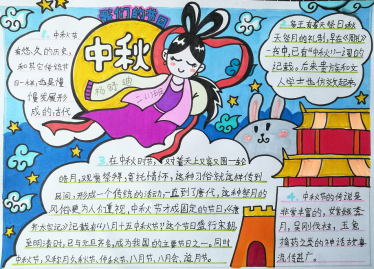 我们的节日
中秋
杨舒迪
二(1)班
1. 中秋节
有悠久的历史,
和其它传统节
日一样,也是慢
慢发展形
成的,古代
2. 帝王有春天祭日,秋
天祭月的礼制,早在《周礼》
一书中,已有“中秋”一词的
记载。后来贵族和文
人学士也仿效起来
3. 在中秋时节,对着天上又亮又圆一轮
皓月,观赏祭拜,寄托情怀,这种习俗就这样传到
民间,形成一个传统的活动,一直到了唐代,这种祭月的
风俗更为人们重视,中秋节才成固定的节日,《唐
书·太宗记》记载有“八月十五中秋节”这个节日盛行宋朝,
至明清时,已与元旦齐名,成为我国的主要节日之一。同时
中秋节,又称月夕、秋节、仲秋节、八月节、八月会、追月节。
4. 中秋节的传说是
非常丰富的,嫦娥奔
月,吴刚伐桂,玉兔
捣药之类的神话故事
流传甚广。